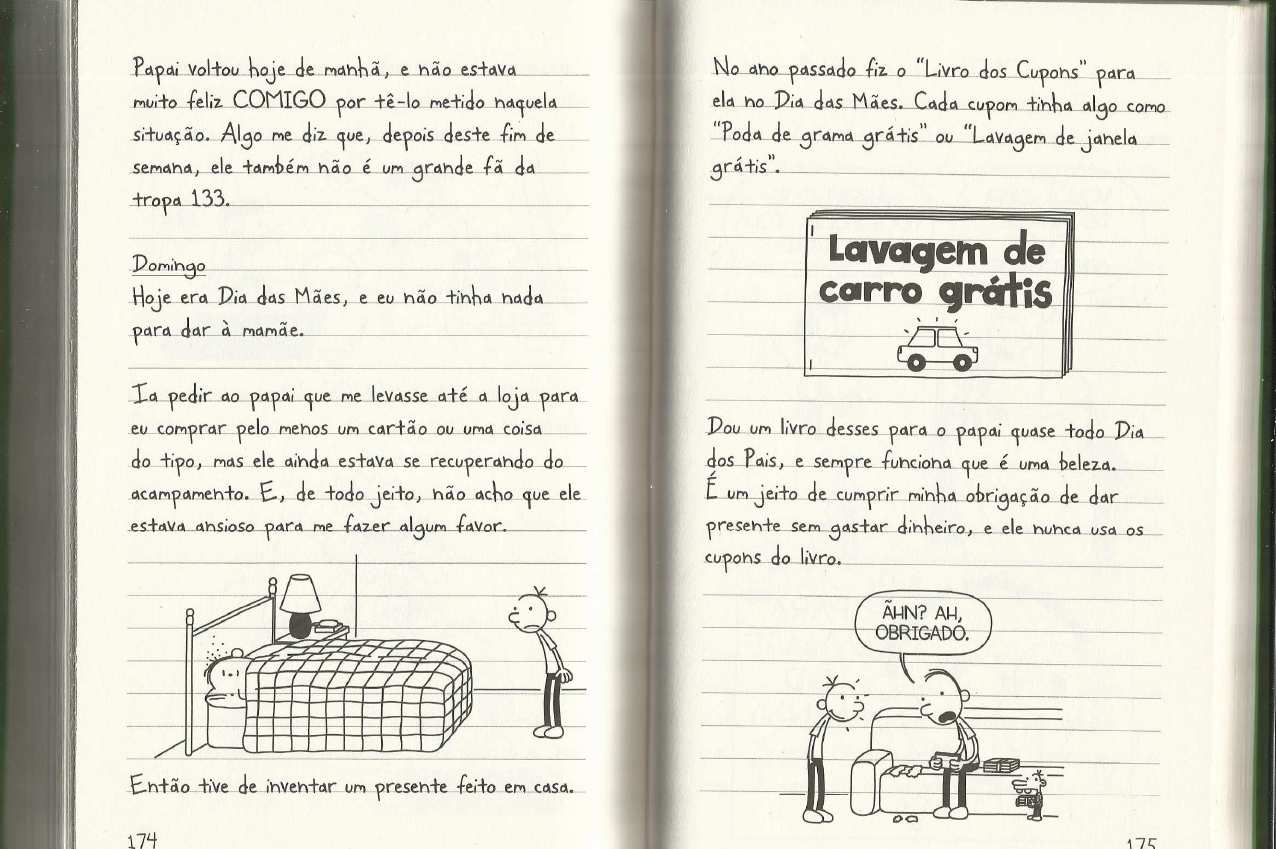 Papai voltou hoje de manhã, e não estava
muito feliz COMIGO por tê-lo metido naquela
situação. Algo me diz que, depois deste fim de
semana, ele também não é um grande fã da
tropa 133.
Domingo
Hoje era Dia das Mães, e eu não tinha nada
para dar à mamãe.
Ia pedir ao papai que me levasse até a loja para
eu comprar pelo menos um cartão ou uma coisa
do tipo, mas ele ainda estava se recuperando do
acampamento. E, de todo jeito, não acho que ele
estava ansioso para me fazer algum favor.
Então tive de inventar um presente feito em casa.
174
No ano passado fiz o “Livro dos Cupons” para
ela no Dia das Mães. Cada cupom tinha algo como
“Poda de grama grátis” ou “Lavagem de janela
grátis”.
Lavagem de
carro grátis
Dou um livro desses para o papai quase todo Dia
dos Pais, e sempre funciona que é uma beleza.
É um jeito de cumprir minha obrigação de dar
presente sem gastar dinheiro, e ele nunca usa os
cupons do livro.
ÃHN? AH,
OBRIGADO.
175